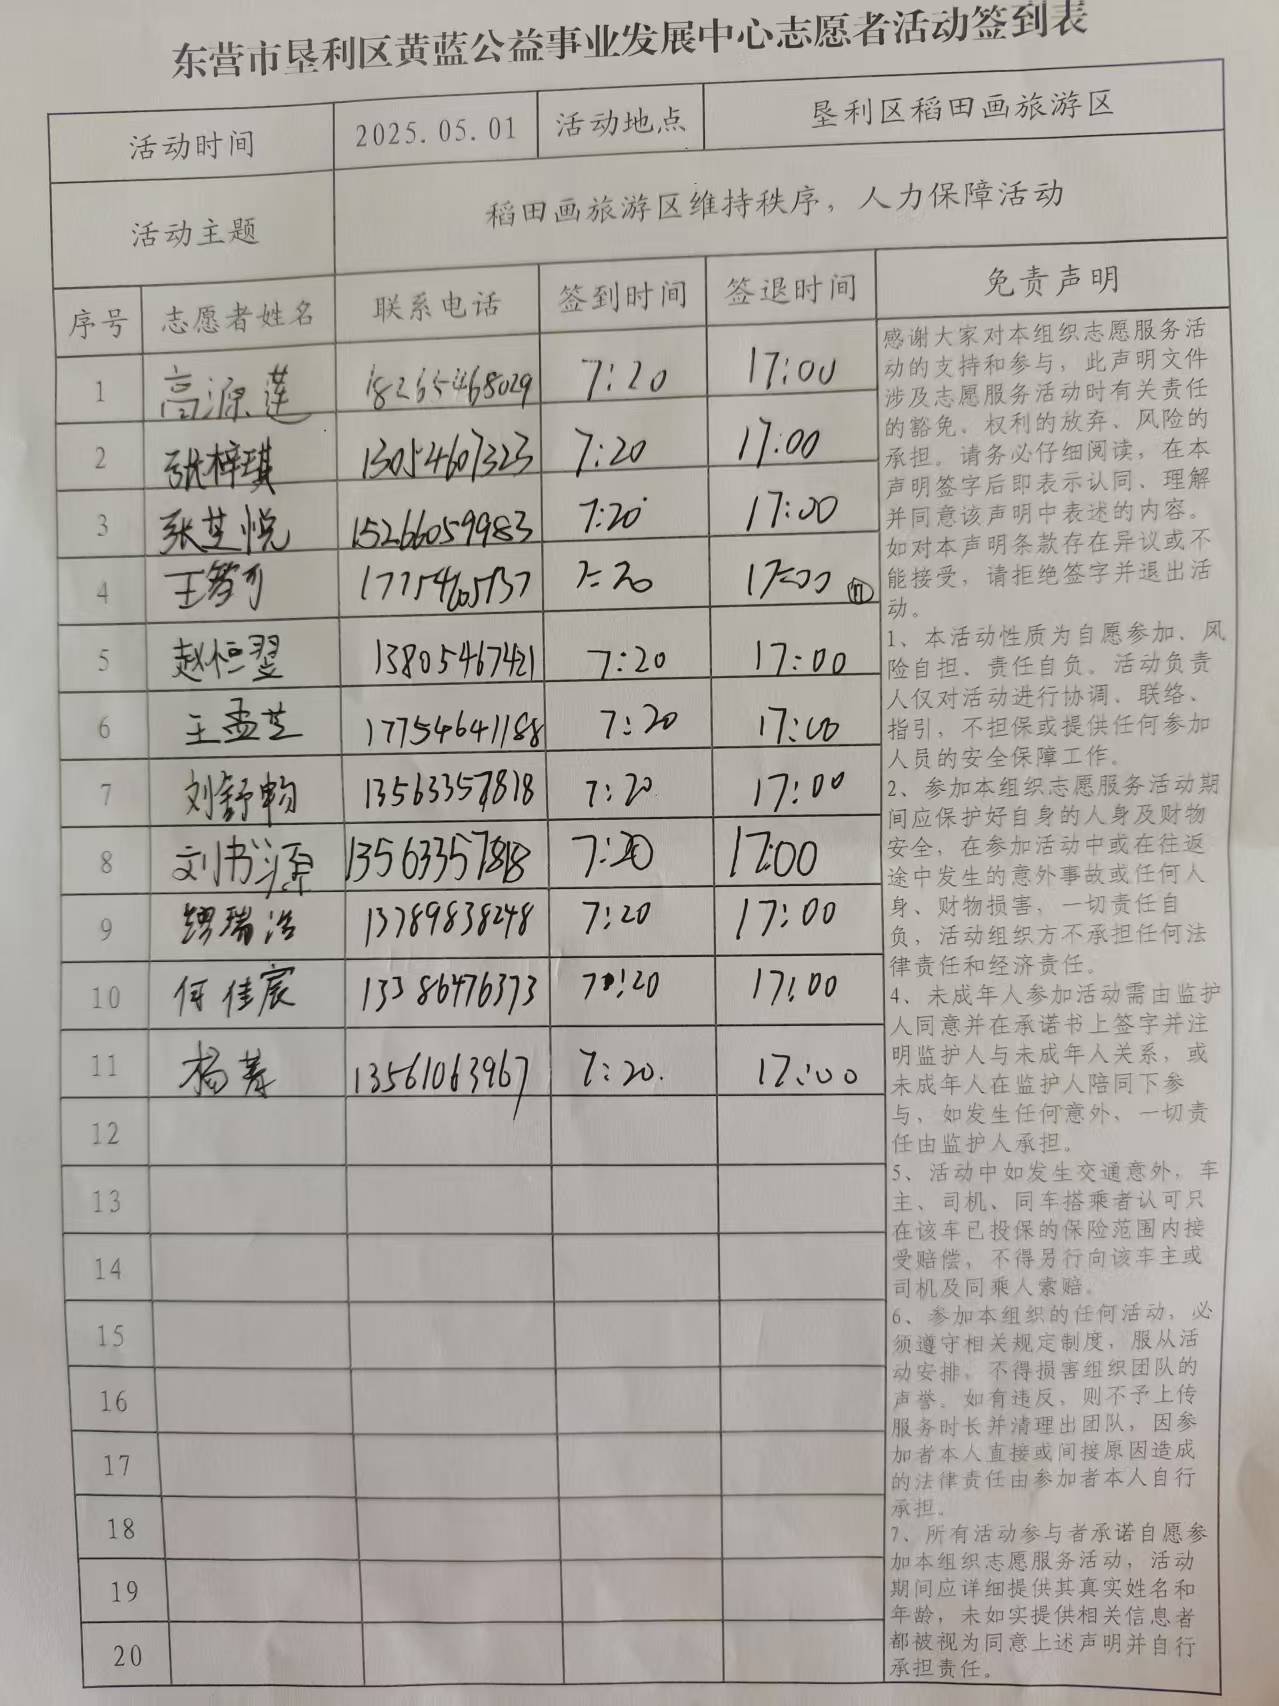 东营市垦利区黄蓝公益事业发展中心志愿者活动签到表
活动时间 2025.05.01 活动地点 垦利区稻田画旅游区
活动主题 稻田画旅游区维持秩序，人力保障活动
序号 志愿者姓名 联系电话 签到时间 签退时间 免责声明
1 高源莲 18265468029 7:20 17:00
2 张梓琪 13054607323 7:20 17:00
3 张芝悦 15266059983 7:20 17:00
4 17754605737 7:20 17:00
5 赵恒翌 13805467421 7:20 17:00
6 王孟芝 17754641188 7:20 17:00
7 刘舒畅 13563357818 7:20 17:00
8 刘书源 13563357818 7:20 17:00
9 缪瑞浩 13789838248 7:20 17:00
10 何佳宸 13386476373 7:20 17:00
11 杨 13561063967 7:20. 17:00
12
13
14
15
16
17
18
19
20
感谢大家对本组织志愿服务活
动的支持和参与，此声明文件
涉及志愿服务活动时有关责任
的豁免、权利的放弃、风险的
承担。请务必仔细阅读，在本
声明签字后即表示认同、理解
并同意该声明中表述的内容。
如对本声明条款存在异议或不
能接受，请拒绝签字并退出活
动。
1、本活动性质为自愿参加、风
险自担、责任自负。活动负责
人仅对活动进行协调、联络、
指引，不担保或提供任何参加
人员的安全保障工作。
2、参加本组织志愿服务活动期
间应保护好自身的人身及财物
安全，在参加活动中或在往返
途中发生的意外事故或任何人
身、财物损害，一切责任自
负，活动组织方不承担任何法
律责任和经济责任。
4、未成年人参加活动需由监护
人同意并在承诺书上签字并注
明监护人与未成年人关系，或
未成年人在监护人陪同下参
与，如发生任何意外，一切责
任由监护人承担。
5、活动中如发生交通意外，车
主、司机、同车搭乘者认可只
在该车已投保的保险范围内接
受赔偿，不得另行向该车主或
司机及同乘人索赔。
6、参加本组织的任何活动，必
须遵守相关规定制度，服从活
动安排，不得损害组织团队的
声誉。如有违反，则不予上传
服务时长并清理出团队，因参
加者本人直接或间接原因造成
的法律责任由参加者本人自行
承担。
7、所有活动参与者承诺自愿参
加本组织志愿服务活动，活动
期间应详细提供其真实姓名和
年龄，未如实提供相关信息者
都被视为同意上述声明并自行
承担责任。